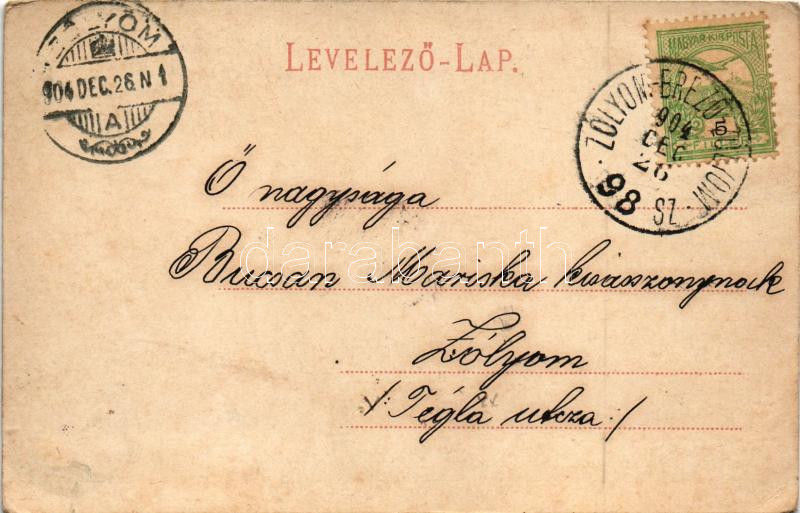 ZÓLYOM
904 DEC. 26. N 1
A
LEVELEZŐ-LAP.
MAGYAR·KIR·POSTA
5
ZÓLYOM-BREZÓ
904
DEC
26
98 SZ.
Ő nagysága
Bucsán Mariska kisasszonynak
darabanth
Zólyom
/: Tégla utcza :/